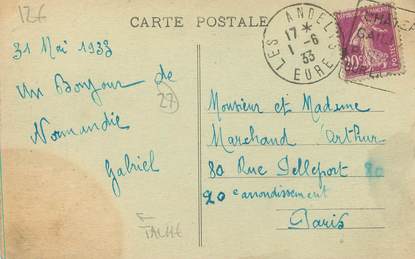 12€
CARTE POSTALE
LES ANDELYS
17 *
1 - 6
33
EURE
20c
POSTES
31 Mai 1933
Un Bonjour de
27
Normandie
Gabriel
TACHE
Monsieur et Madame
Marchand Arthur
80 Rue Pelleport 80
20e arrondissement
Paris